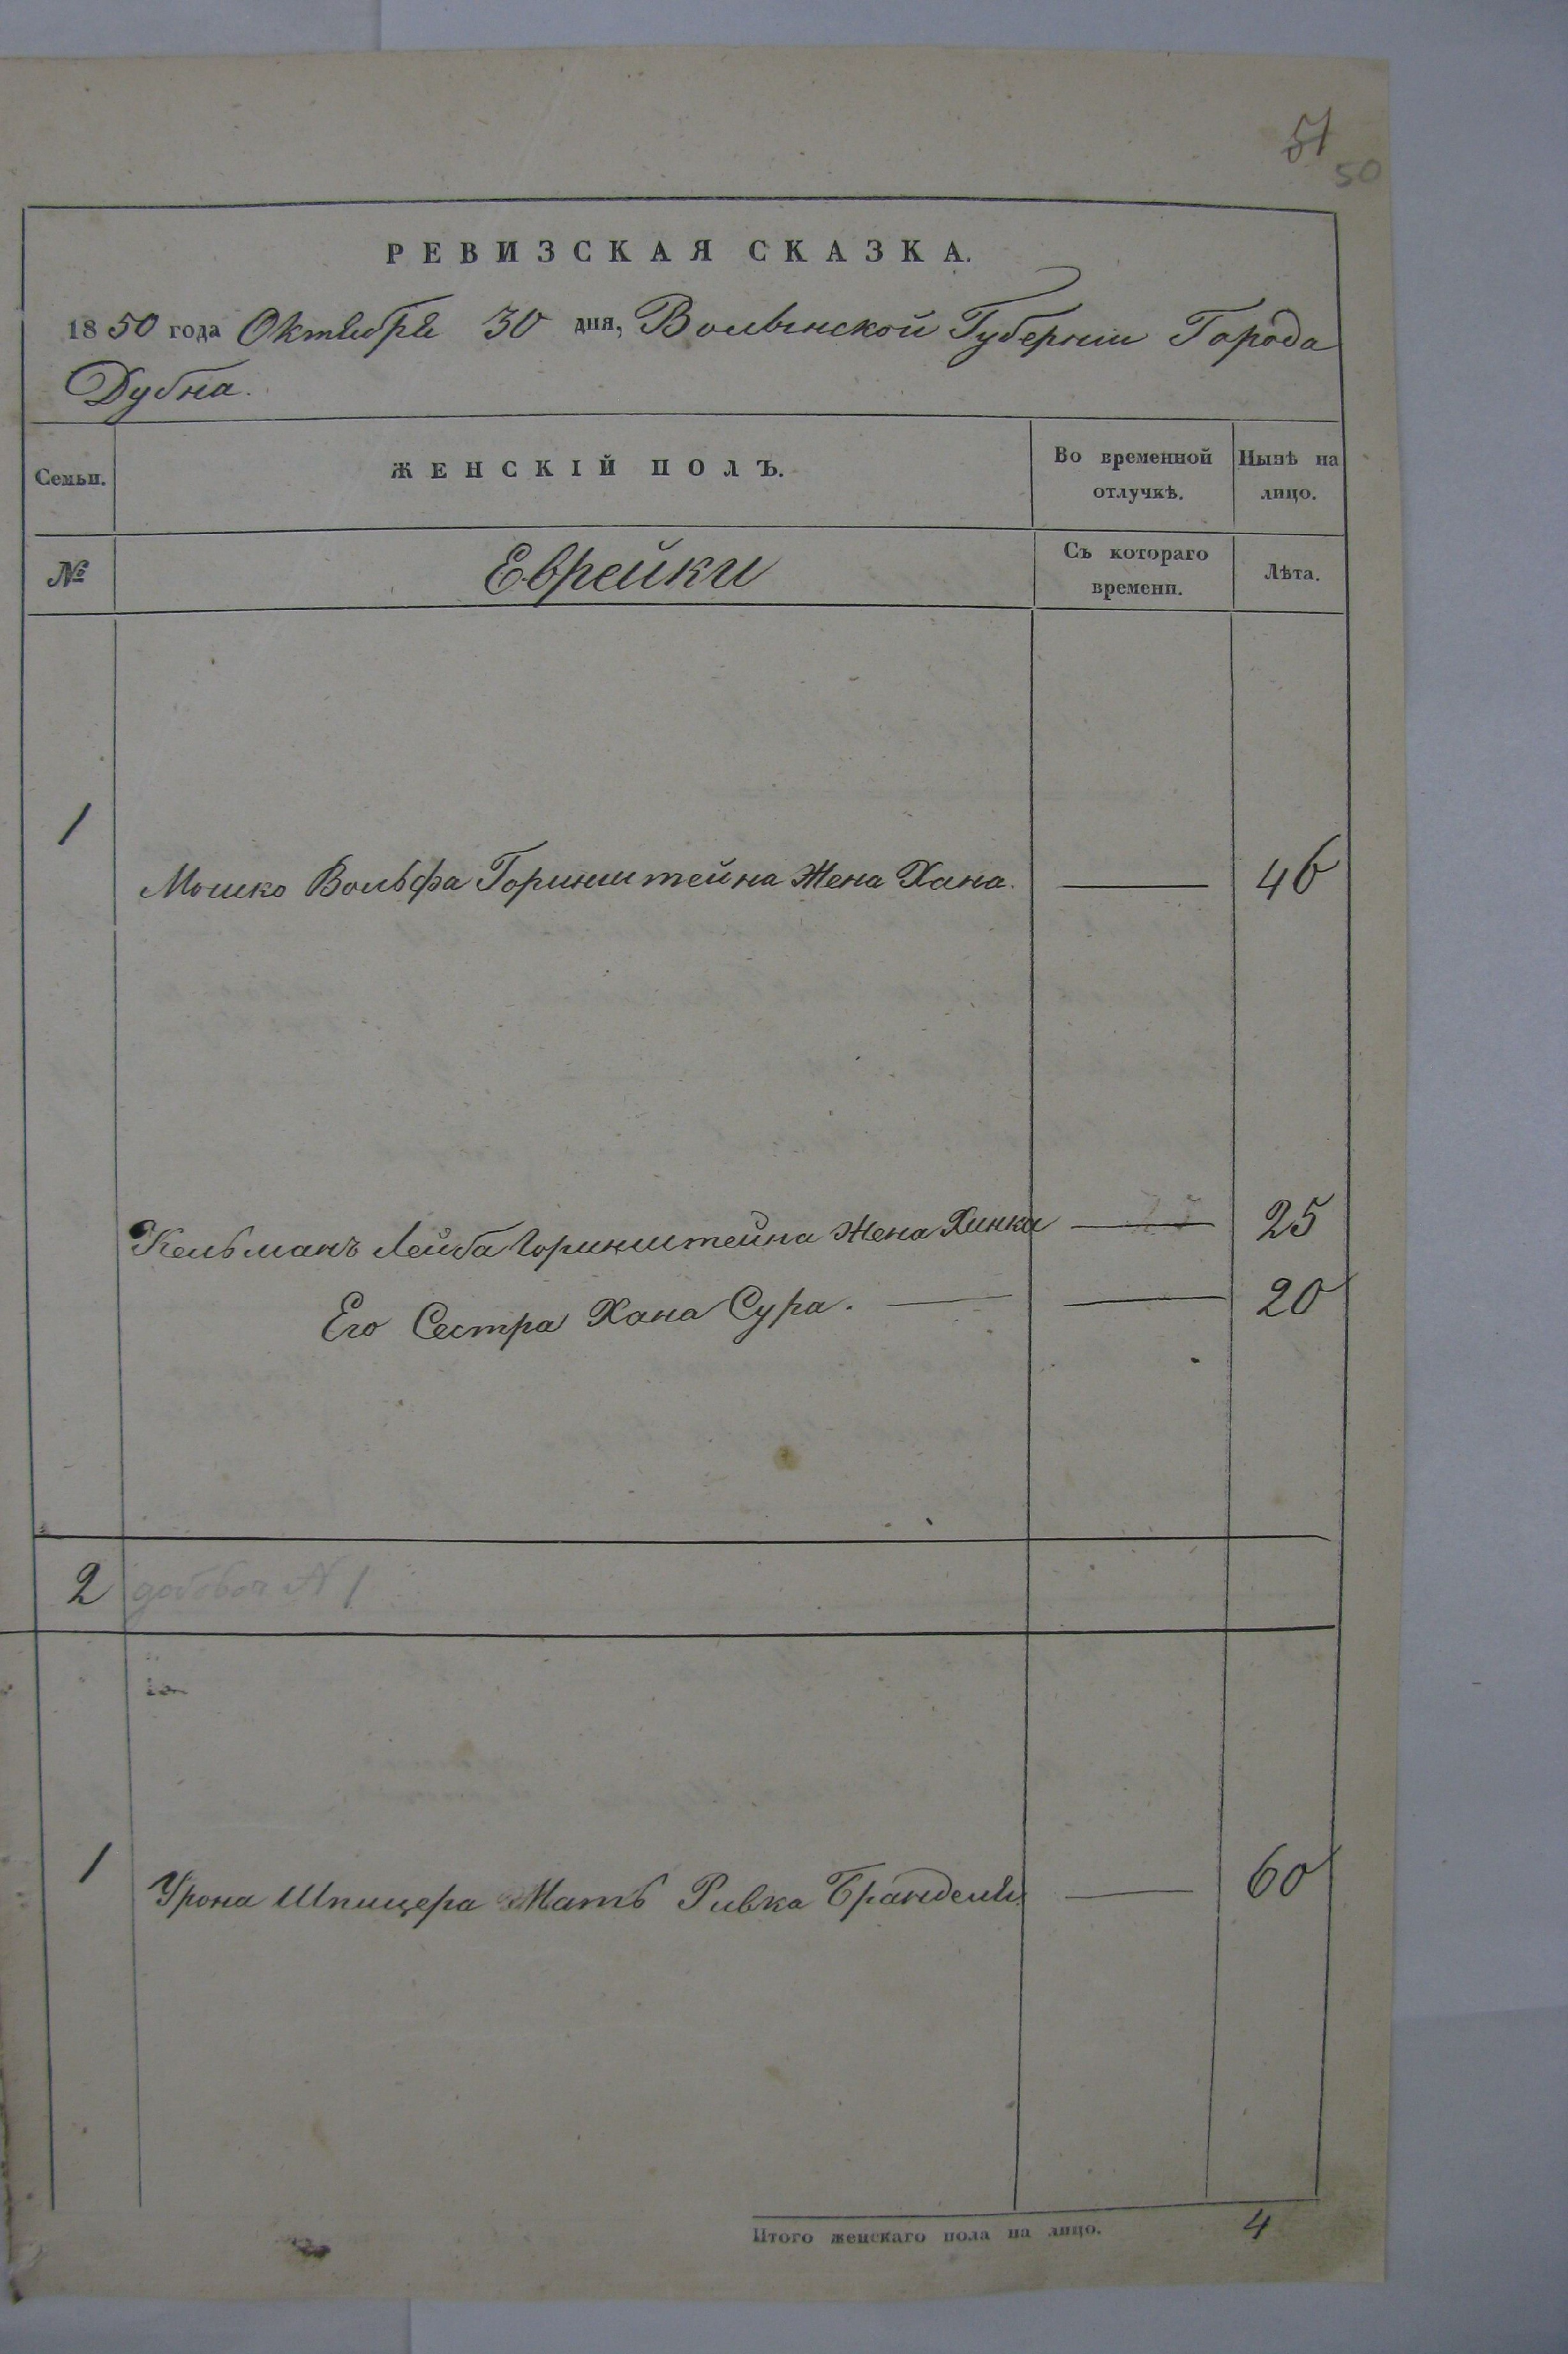 51
50
РЕВИЗСКАЯ СКАЗКА.
1850 года Октября 30 дня, Волынской Губернии Города
Дубна.
Семьи. ЖЕНСКІЙ ПОЛЪ. Во временной отлучкѣ. Нынѣ на лицо.
№ Еврейки Съ котораго времени. Лѣта.
1
Мошко Вольфа Горинштейна Жена Хана. — 46
Кельманъ Лейба Горинштейна Жена Хинка — 25
Его Сестра Хана Сура. — — 20
2 №1
1 Урона Шпицера Мать Ривка Брандели — 60
Итого женскаго пола на лицо. 4